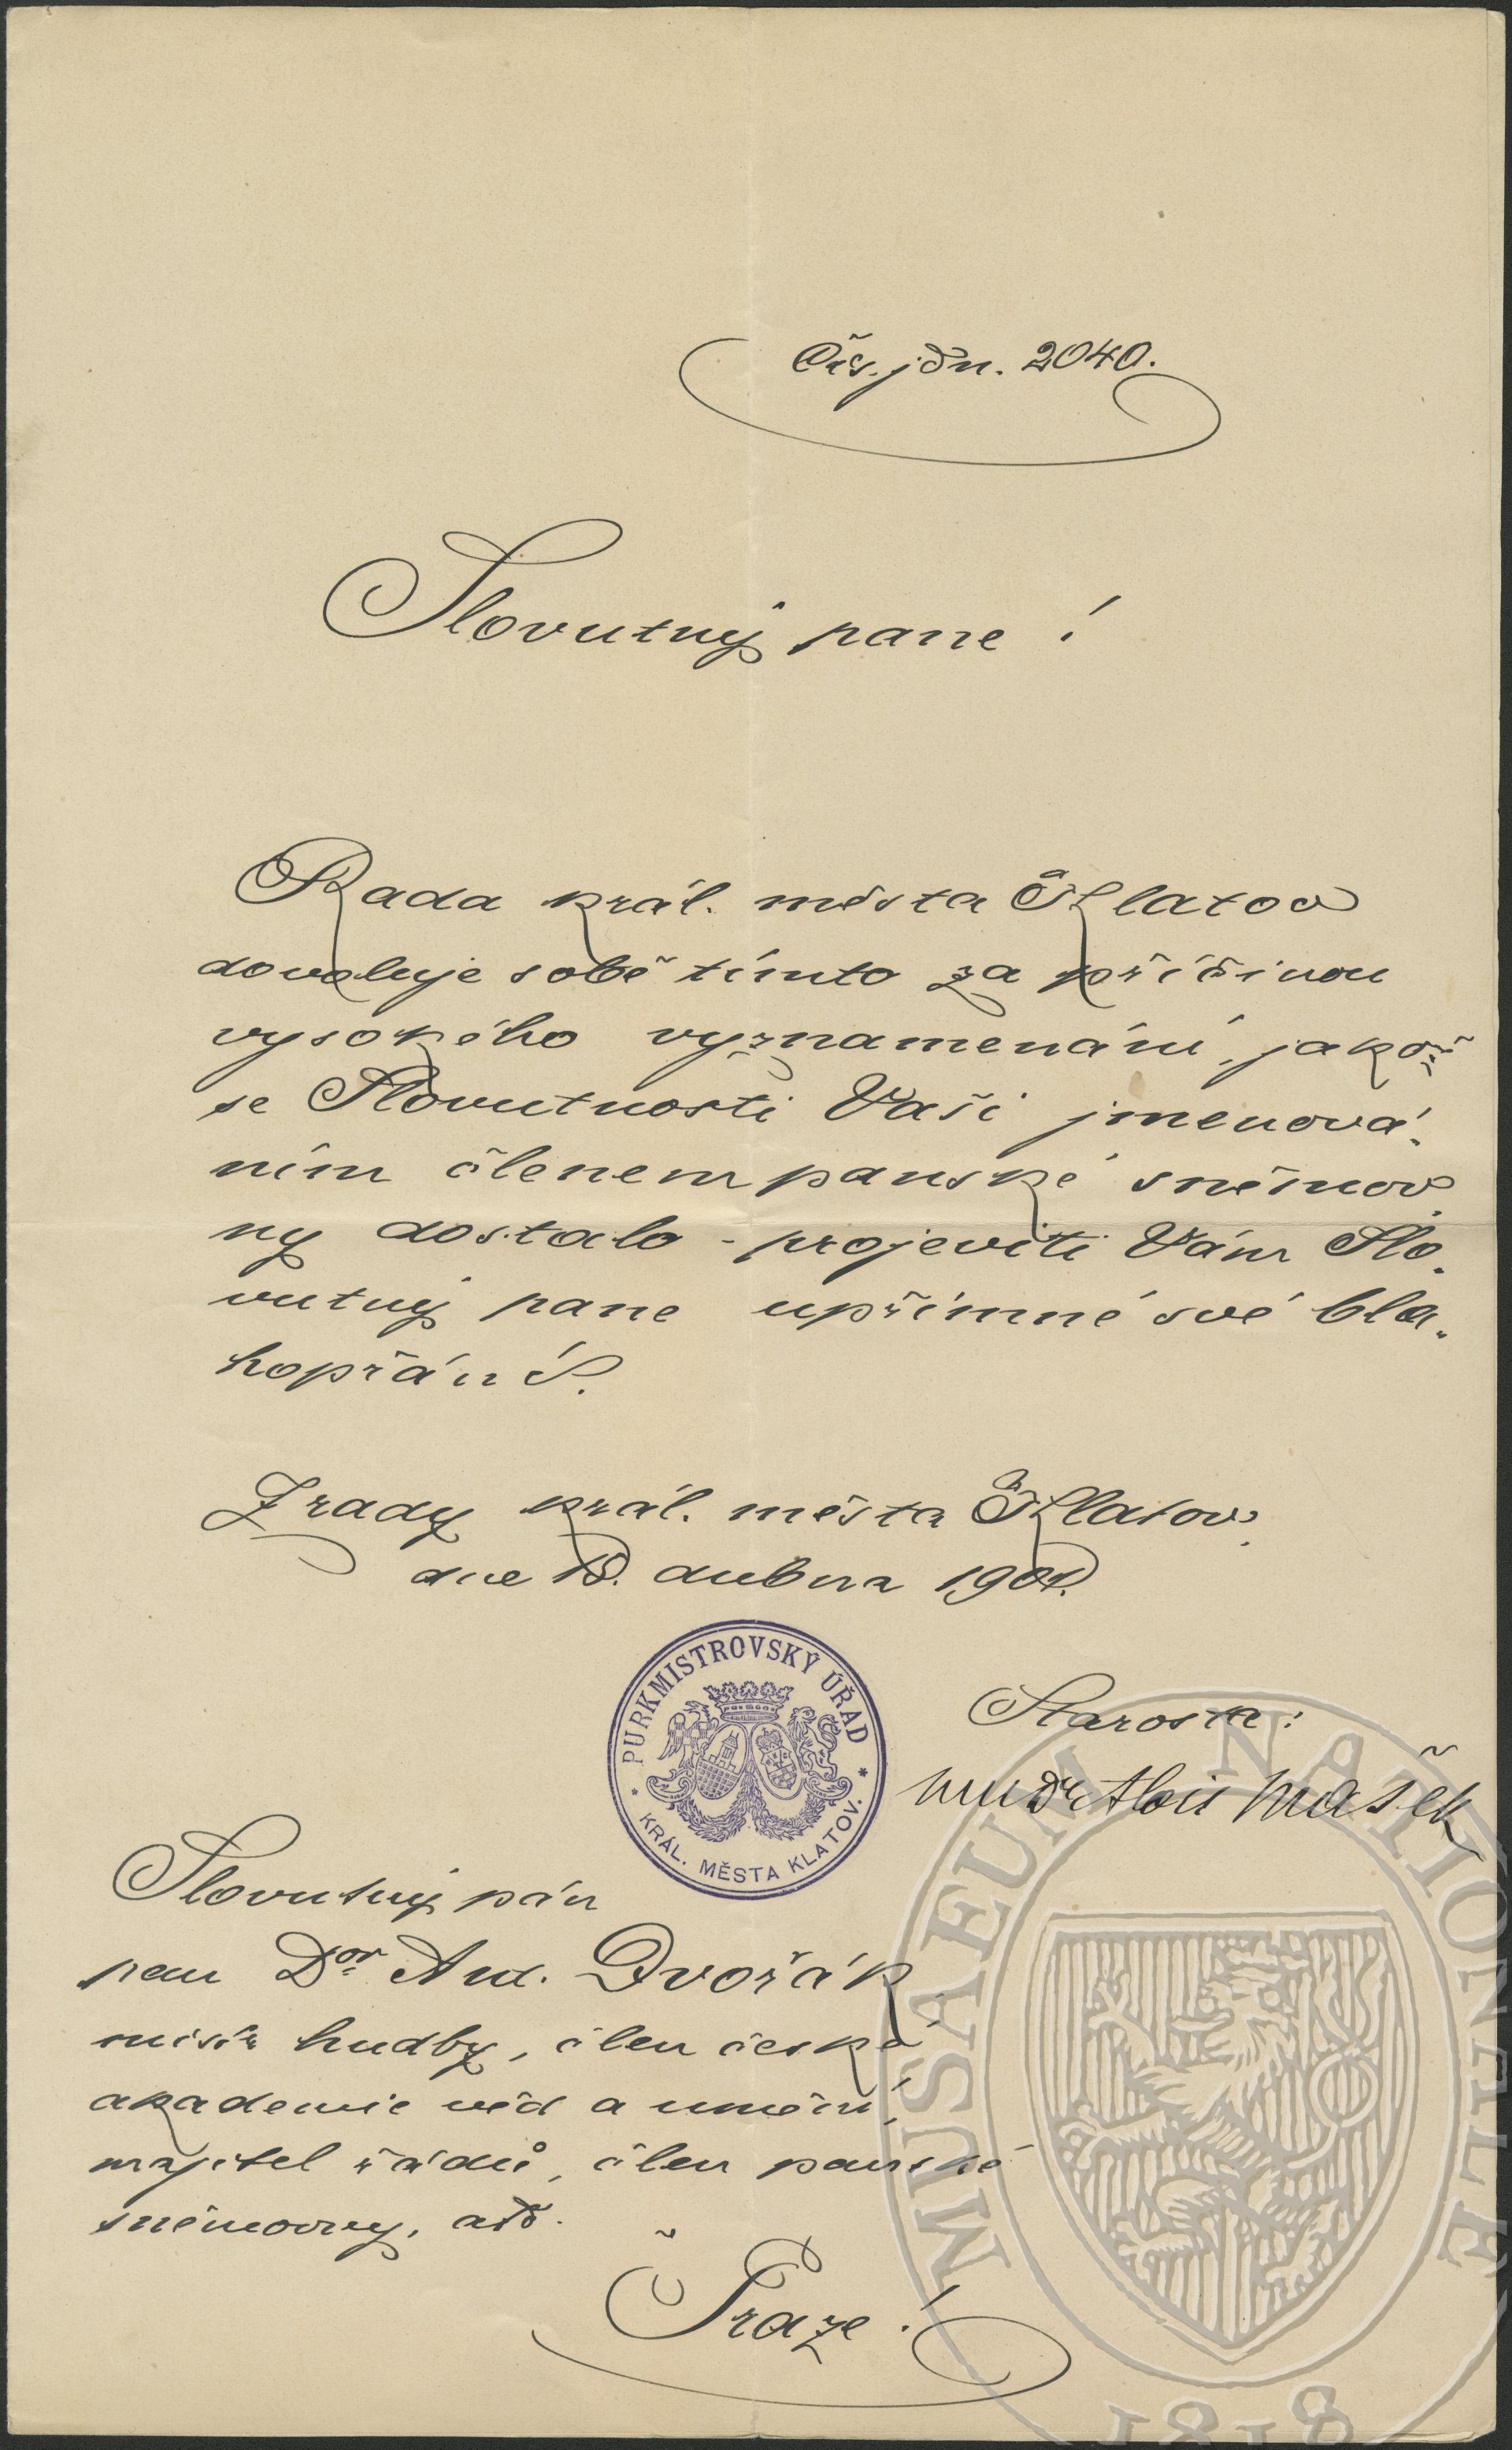 Čís. jdn. 2040.
Slovutný pane!
Rada král. města Klatov
dovoluje sobě tímto za příčinou
vysokého vyznamenání, jakož
se Slovutnosti Vaší jmenová-
ním členem panské sněmov-
ny dostalo - projeviti Vám Slo-
vutný pane upřímné své bla-
hopřání.
Z rady král. města Klatov.
dne 18. dubna 1901.
PURKMISTROVSKÝ ÚŘAD
* KRÁL. MĚSTA KLATOV. *
Starosta:
MUDr Alois Mašek
Slovutný pán
pan Dor. Ant. Dvořák
mistr hudby, člen české
akademie věd a umění,
majitel řádů, člen panské
sněmovny, atd.
v Praze!
MUSAEUM NATIONALE
1818